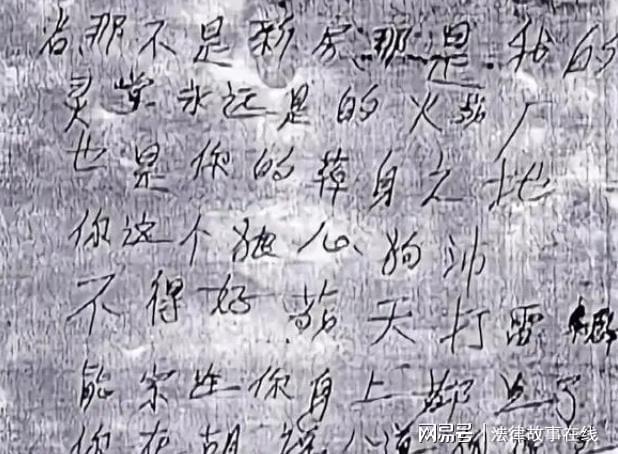 省那不是新房那是我的
灵堂永远是的火葬厂
也是你的葬身之地
你这个狼心狗沛
不得好葬天打雷
能家姓你身上都
你在胡说八道
网易号 | 法律故事在线